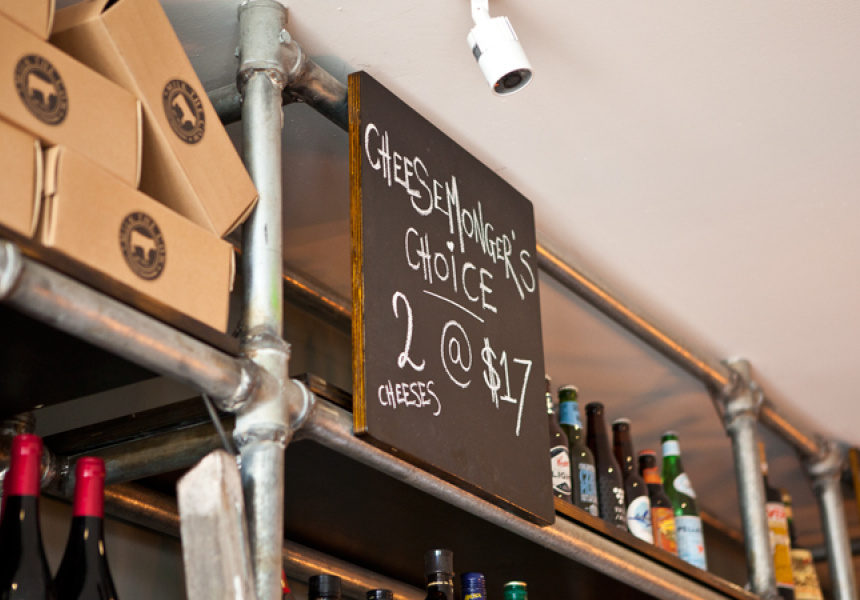 CHEESEMONGER'S
CHOiCE
2 @ $17
CHEESES